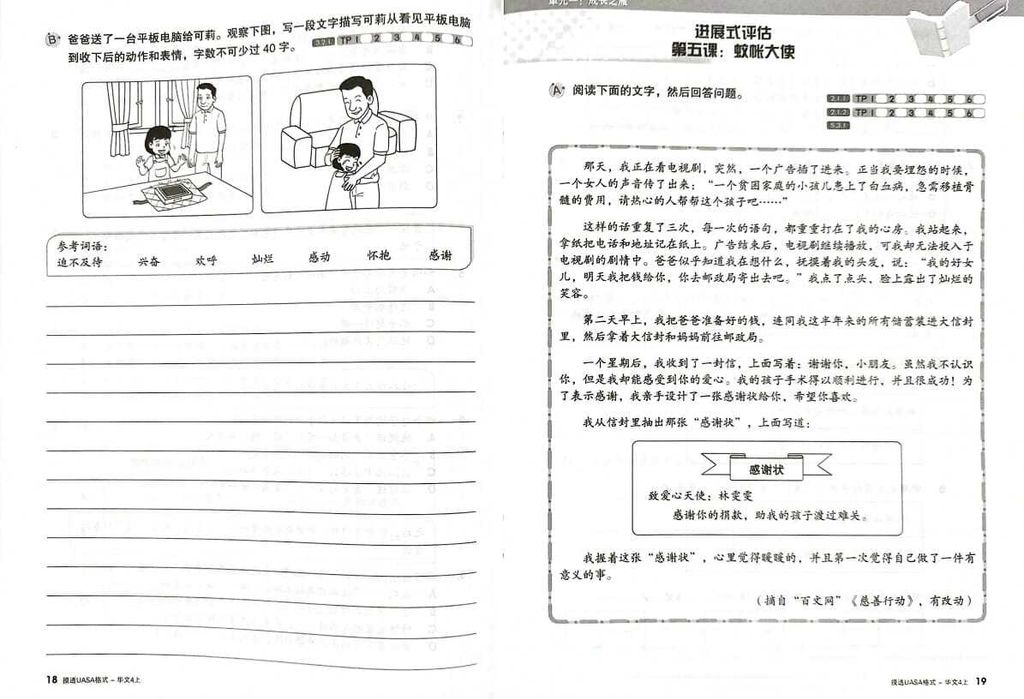 B 爸爸送了一台平板电脑给可莉。观察下图，写一段文字描写可莉从看见平板电脑
到收下后的动作和表情，字数不可少过 40 字。
TP 1 2 3 4 5 6
参考词语：
迫不及待 兴奋 欢呼 灿烂 感动 怀抱 感谢
18 摸透UASA格式 – 华文4上
单元一：成长之旅
进展式评估
第五课：蚊帐大使
A 阅读下面的文字，然后回答问题。
2.1.1 TP 1 2 3 4 5 6
2.1.2 TP 1 2 3 4 5 6
5.3.1
那天，我正在看电视剧，突然，一个广告插了进来。正当我要埋怨的时候，
一个女人的声音传了出来：“一个贫困家庭的小孩儿患上了白血病，急需移植骨
髓的费用，请热心的人帮帮这个孩子吧……”
这样的话重复了三次，每一次的语句，都重重打在了我的心房。我站起来，
拿纸把电话和地址记在纸上。广告结束后，电视剧继续播放，可我却无法投入于
电视剧的剧情中。爸爸似乎知道我在想什么，抚摸着我的头发，说：“我的好女
儿，明天我把钱给你，你去邮政局寄出去吧。”我点了点头，脸上露出了灿烂的
笑容。
第二天早上，我把爸爸准备好的钱，连同我这半年来的所有储蓄装进大信封
里，然后拿着大信封和妈妈前往邮政局。
一个星期后，我收到了一封信，上面写着：谢谢你，小朋友。虽然我不认识
你，但是我却能感受到你的爱心。我的孩子手术得以顺利进行，并且很成功！为
了表示感谢，我亲手设计了一张感谢状给你，希望你喜欢。
我从信封里抽出那张“感谢状”，上面写道：
感谢状
致爱心天使：林雯雯
感谢你的捐款，助我的孩子渡过难关。
我握着这张“感谢状”，心里觉得暖暖的，并且第一次觉得自己做了一件有
意义的事。
（摘自“百文网”《慈善行动》，有改动）
摸透UASA格式 – 华文4上 19